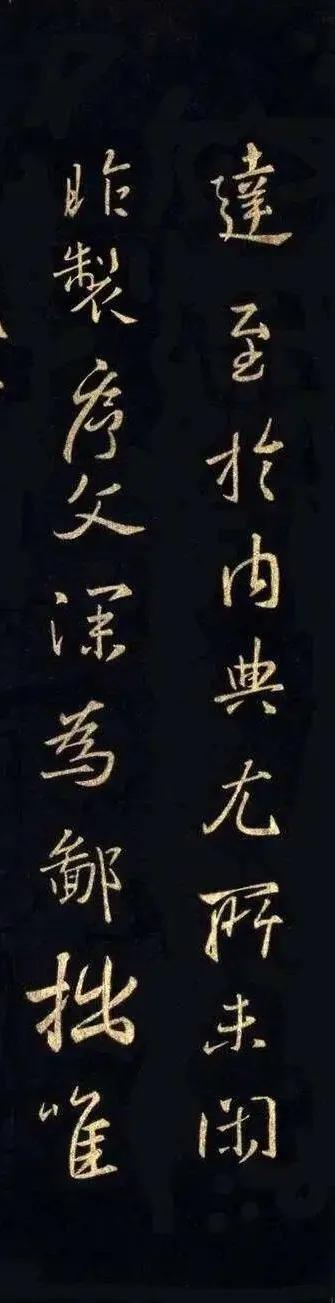 達至於内典尤所未閑
昨製序文深為鄙拙唯